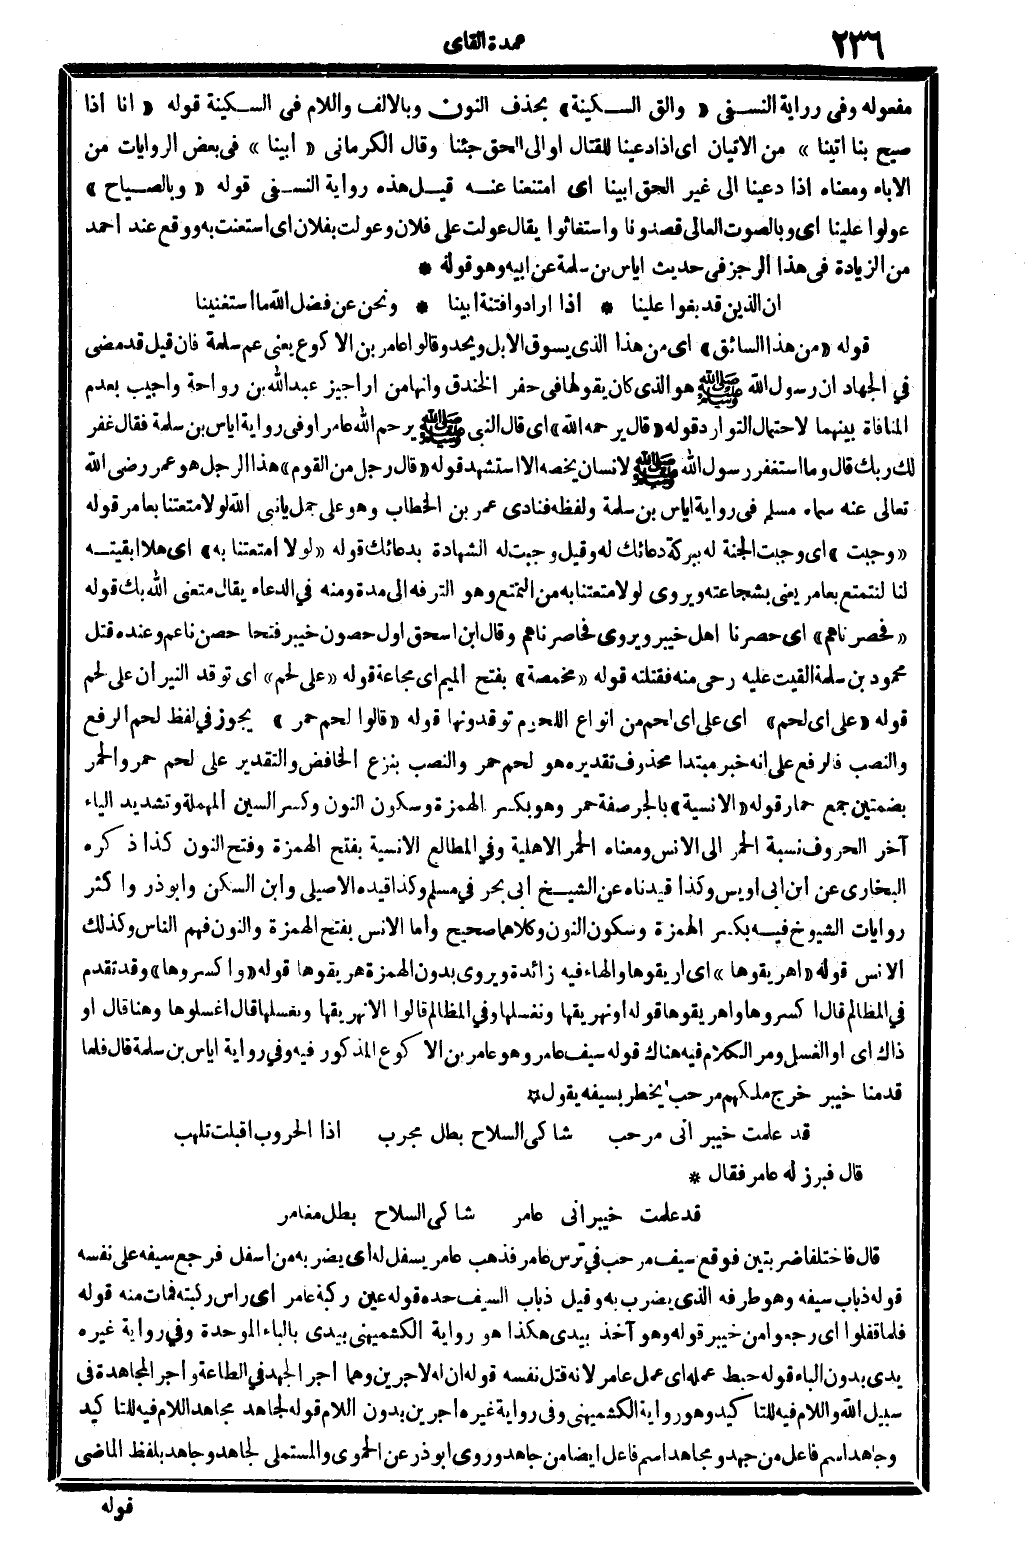 ٢٣٦
عمدة القاى
مفعوله وفى رواية النسفى « والق السكينة» بحذف النون وبالالف واللام فى السكينة قوله « انا اذا
صيح بنا اتينا » من الاتيان اى اذا دعينا للقتال او الى الحق جئنا وقال الكرمانى « ابينا » فى بعض الروايات من
الاباء ومعناه اذا دعينا الى غير الحق ابينا اى امتنعنا عنه قيل هذه رواية النسفى قوله « وبالصياح »
عولوا علينا اى وبالصوت العالى قصدونا واستغاثوا يقال عولت على فلان وعولت بفلان اى استعنت به ووقع عند احمد
من الزيادة فى هذا الرجز فى حديث اياس بن سلمة عن ابيه وهو قوله *
ان الذين قد بغوا علينا * اذا ارادوا فتنة ابينا * ونحن عن فضل الله ما استغنينا
قوله «من هذا السائق» اى من هذا الذى يسوق الابل ويحدو قالوا عامر بن الاكوع يعنى عم سلمة فان قيل قد مضى
في الجهاد ان رسول الله ﷺ هو الذى كان يقولها فى حفر الخندق وانها من اراجيز عبد الله بن رواحة واجيب بعدم
المنافاة بينهما لاحتمال التوارد قوله «قال يرحمه الله» اى قال النبى ﷺ يرحم الله عامرا وفى رواية اياس بن سلمة فقال غفر
لك ربك قال وما استغفر رسول الله ﷺ لانسان يخصه الا استشهد قوله «قال رجل من القوم» هذا الرجل هو عمر رضى الله
تعالى عنه سماه مسلم فى رواية اياس بن سلمة ولفظه فنادى عمر بن الخطاب وهو على جمل يانبى الله لولا متعتنا بعامر قوله
«وجبت » اى وجبت الجنة له ببركة دعائك له وقيل وجبت له الشهادة بدعائك قوله «لولا أمتعتنا به» اى هلا ابقيته
لنا لنتمتع بعامر يعنى بشجاعته ويروى لولا متعتنا به من التمتع وهو الترفه الى مدة ومنه في الدعاء يقال متعنى الله بك قوله
«فحصرناهم» اى حصرنا اهل خيبر ويروى فحاصرناهم وقال ابن اسحق اول حصون خيبر فتحا حصن ناعم وعنده قتل
محمود بن سلمة القيت عليه رحى منه فقتلته قوله «مخمصة» بفتح الميم اى مجاعة قوله «على لحم» اى توقد النيران على لحم
قوله «على اى لحم» اى على اى لحم من انواع اللحوم توقدونها قوله «قالوا لحم حمر » يجوز في لفظ لحم الرفع
والنصب فالرفع على انه خبر مبتدا محذوف تقديره هو لحم حمر والنصب بنزع الخافض والتقدير على لحم حمر والحمر
بضمتين جمع حمار قوله «الانسية» بالجر صفة حمر وهو بكسر الهمزة وسكون النون وكسر السين المهملة وتشديد الياء
آخر الحروف نسبة الحمر الى الانس ومعناه الحمر الاهلية وفي المطالع الانسية بفتح الهمزة وفتح النون كذا ذكره
البخارى عن ابن ابى اويس وكذا قيدناه عن الشيخ ابى بحر في مسلم وكذا قيده الاصيلى وابن السكن وابو ذر واكثر
روايات الشيوخ فيه بكسر الهمزة وسكون النون وكلاهما صحيح واما الانس بفتح الهمزة والنون فهم الناس وكذلك
الانس قوله «اهريقوها » اى اريقوها والهاء فيه زائدة ويروى بدون الهمزة هريقوها قوله «واكسروها» وقد تقدم
في المظالم قال اكسروها واهريقوها قوله او نهريقها ونغسلها وفي المظالم قالوا الا نهريقها ونغسلها قال اغسلوها وهنا قال او
ذاك اى او الغسل ومر الكلام فيه هناك قوله سيف عامر وهو عامر بن الاكوع المذكور فيه وفي رواية اياس بن سلمة قال فلما
قدمنا خيبر خرج ملكهم مرحب يخطر بسيفه يقول *
قد علمت خيبر انى مرحب شاكى السلاح بطل مجرب اذا الحروب اقبلت تلهب
قال فبرز له عامر فقال *
قد علمت خيبر انى عامر شاكى السلاح بطل مغامر
قال فاختلفا ضربتين فوقع سيف مرحب في ترس عامر فذهب عامر يسفل له اى يضربه من اسفل فرجع سيفه على نفسه
قوله ذباب سيفه وهو طرفه الذى يضرب به وقيل ذباب السيف حده قوله عين ركبة عامر اى راس ركبته فمات منه قوله
فلما قفلوا اى رجعوا من خيبر قوله وهو آخذ بيدى هكذا هو رواية الكشميهنى بيدى بالباء الموحدة وفي رواية غيره
يدى بدون الباء قوله حبط عمله اى عمل عامر لانه قتل نفسه قوله ان له لاجرين وهما أجر الجهد في الطاعة واجر المجاهدة فى
سبيل الله واللام فيه للتاكيد وهو رواية الكشميهنى وفى رواية غيره اجرين بدون اللام قوله لجاهد مجاهد اللام فيه للتاكيد
وجاهد اسم فاعل من جهد ومجاهد اسم فاعل ايضا من جاهد وروى ابو ذر عن الحموى والمستملى لجاهد وجاهد بلفظ الماضى
قوله